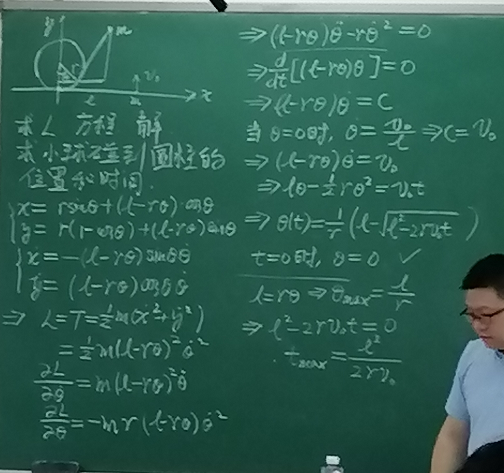 y
m
r
θ
l
m
v₀
x
求 L 方程 解
求小球运动至圆柱的
位置和时间.
x = r sinθ + (l-rθ)·cosθ
y = r(1-cosθ) + (l-rθ) sinθ
ẋ = -(l-rθ) sinθ θ̇
ẏ = (l-rθ) cosθ θ̇
⇒ L=T=½m(ẋ²+ẏ²)
=½m(l-rθ)²θ̇²
∂L/∂θ̇ = m(l-rθ)²θ̇
∂L/∂θ = -mr(l-rθ)θ̇²
⇒ (l-rθ)θ̈ - rθ̇² = 0
⇒ d/dt[(l-rθ)θ̇] = 0
⇒ (l-rθ)θ̇ = C
当 θ=0时, θ̇ = v₀/l ⇒ C = v₀
⇒ (l-rθ)θ̇ = v₀
⇒ lθ - ½rθ² = v₀t
⇒ θ(t) = 1/r (l - √(l²-2rv₀t))
t=0时, θ=0 ✓
l=rθ ⇒ θmax = l/r
⇒ l²-2rv₀t=0
tmax = l²/2rv₀